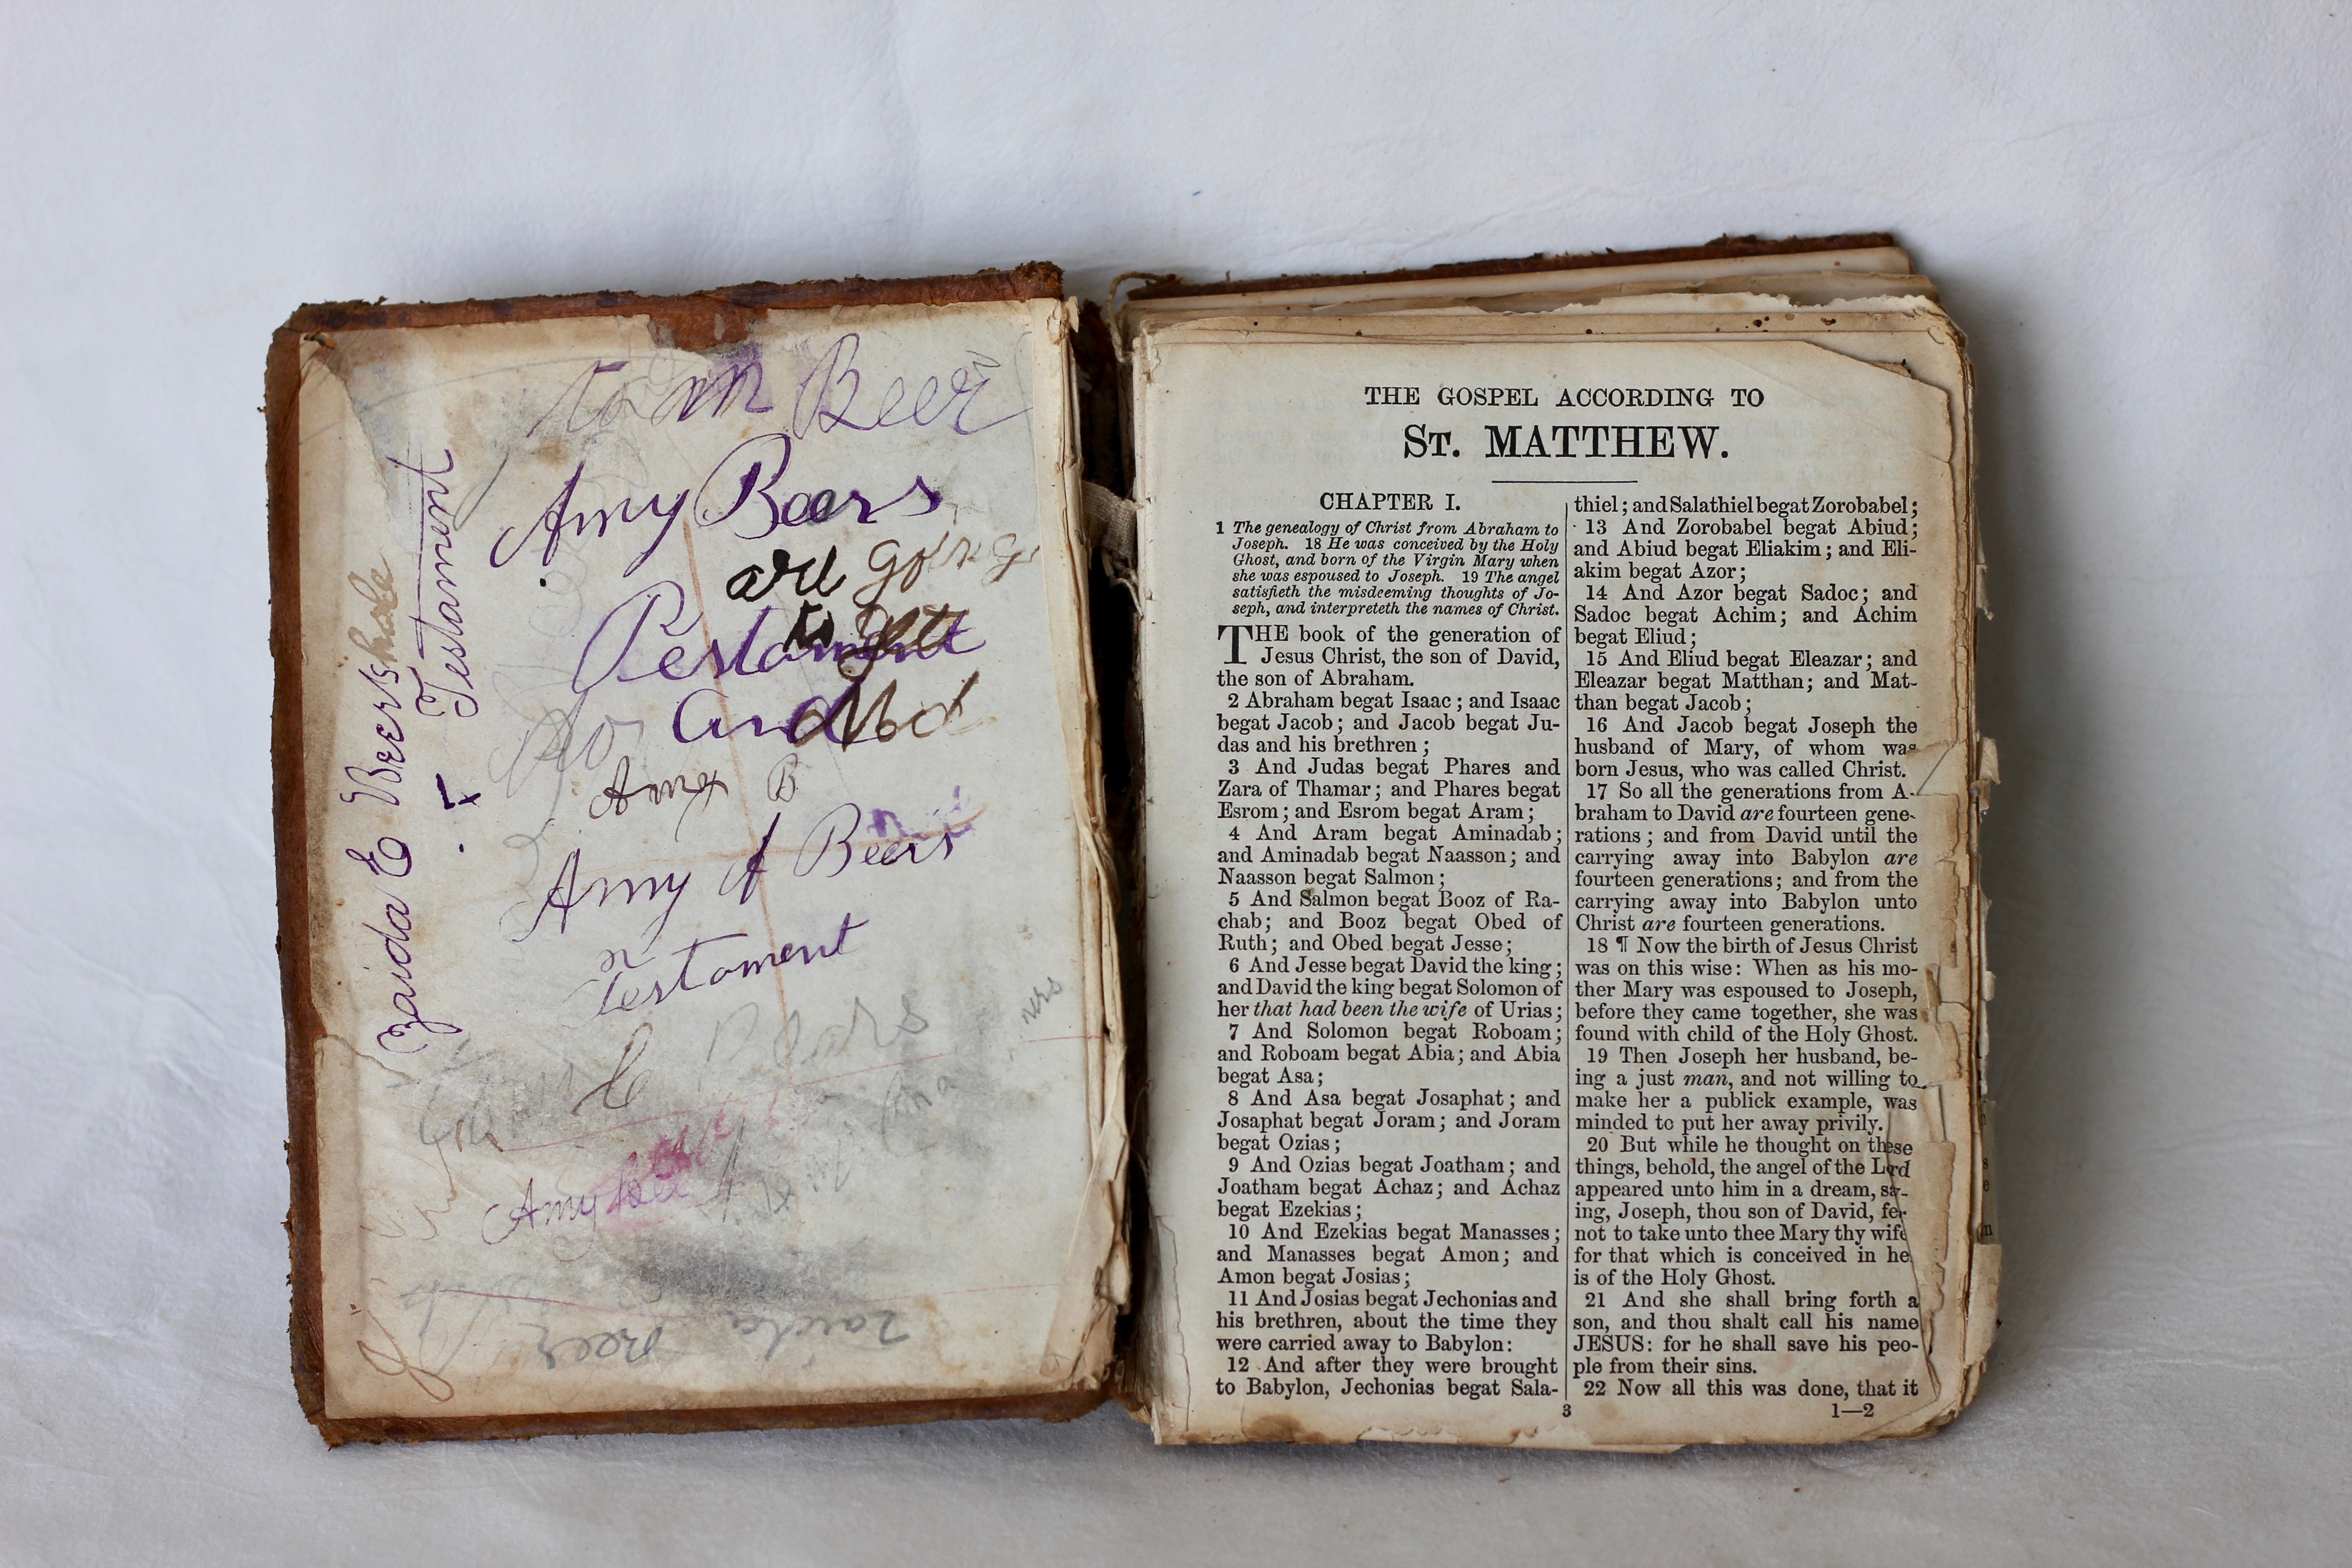 Beer
Amy Beers
are going
to
Testament
and
Amy B
Amy A Beers
Testament
Amy
Zaida Beer
Zaida E Beers
Testament
THE GOSPEL ACCORDING TO
ST. MATTHEW.
CHAPTER I.
1 The genealogy of Christ from Abraham to
Joseph. 18 He was conceived by the Holy
Ghost, and born of the Virgin Mary when
she was espoused to Joseph. 19 The angel
satisfieth the misdeeming thoughts of Jo-
seph, and interpreteth the names of Christ.
THE book of the generation of
Jesus Christ, the son of David,
the son of Abraham.
2 Abraham begat Isaac; and Isaac
begat Jacob; and Jacob begat Ju-
das and his brethren;
3 And Judas begat Phares and
Zara of Thamar; and Phares begat
Esrom; and Esrom begat Aram;
4 And Aram begat Aminadab;
and Aminadab begat Naasson; and
Naasson begat Salmon;
5 And Salmon begat Booz of Ra-
chab; and Booz begat Obed of
Ruth; and Obed begat Jesse;
6 And Jesse begat David the king;
and David the king begat Solomon of
her that had been the wife of Urias;
7 And Solomon begat Roboam;
and Roboam begat Abia; and Abia
begat Asa;
8 And Asa begat Josaphat; and
Josaphat begat Joram; and Joram
begat Ozias;
9 And Ozias begat Joatham; and
Joatham begat Achaz; and Achaz
begat Ezekias;
10 And Ezekias begat Manasses;
and Manasses begat Amon; and
Amon begat Josias;
11 And Josias begat Jechonias and
his brethren, about the time they
were carried away to Babylon:
12 And after they were brought
to Babylon, Jechonias begat Sala-
thiel; and Salathiel begat Zorobabel;
13 And Zorobabel begat Abiud;
and Abiud begat Eliakim; and Eli-
akim begat Azor;
14 And Azor begat Sadoc; and
Sadoc begat Achim; and Achim
begat Eliud;
15 And Eliud begat Eleazar; and
Eleazar begat Matthan; and Mat-
than begat Jacob;
16 And Jacob begat Joseph the
husband of Mary, of whom was
born Jesus, who was called Christ.
17 So all the generations from A-
braham to David are fourteen gene-
rations; and from David until the
carrying away into Babylon are
fourteen generations; and from the
carrying away into Babylon unto
Christ are fourteen generations.
18 ¶ Now the birth of Jesus Christ
was on this wise: When as his mo-
ther Mary was espoused to Joseph,
before they came together, she was
found with child of the Holy Ghost.
19 Then Joseph her husband, be-
ing a just man, and not willing to
make her a publick example, was
minded to put her away privily.
20 But while he thought on these
things, behold, the angel of the Lord
appeared unto him in a dream, say-
ing, Joseph, thou son of David, fear
not to take unto thee Mary thy wife
for that which is conceived in he
is of the Holy Ghost.
21 And she shall bring forth a
son, and thou shalt call his name
JESUS: for he shall save his peo-
ple from their sins.
22 Now all this was done, that it
3
1—2